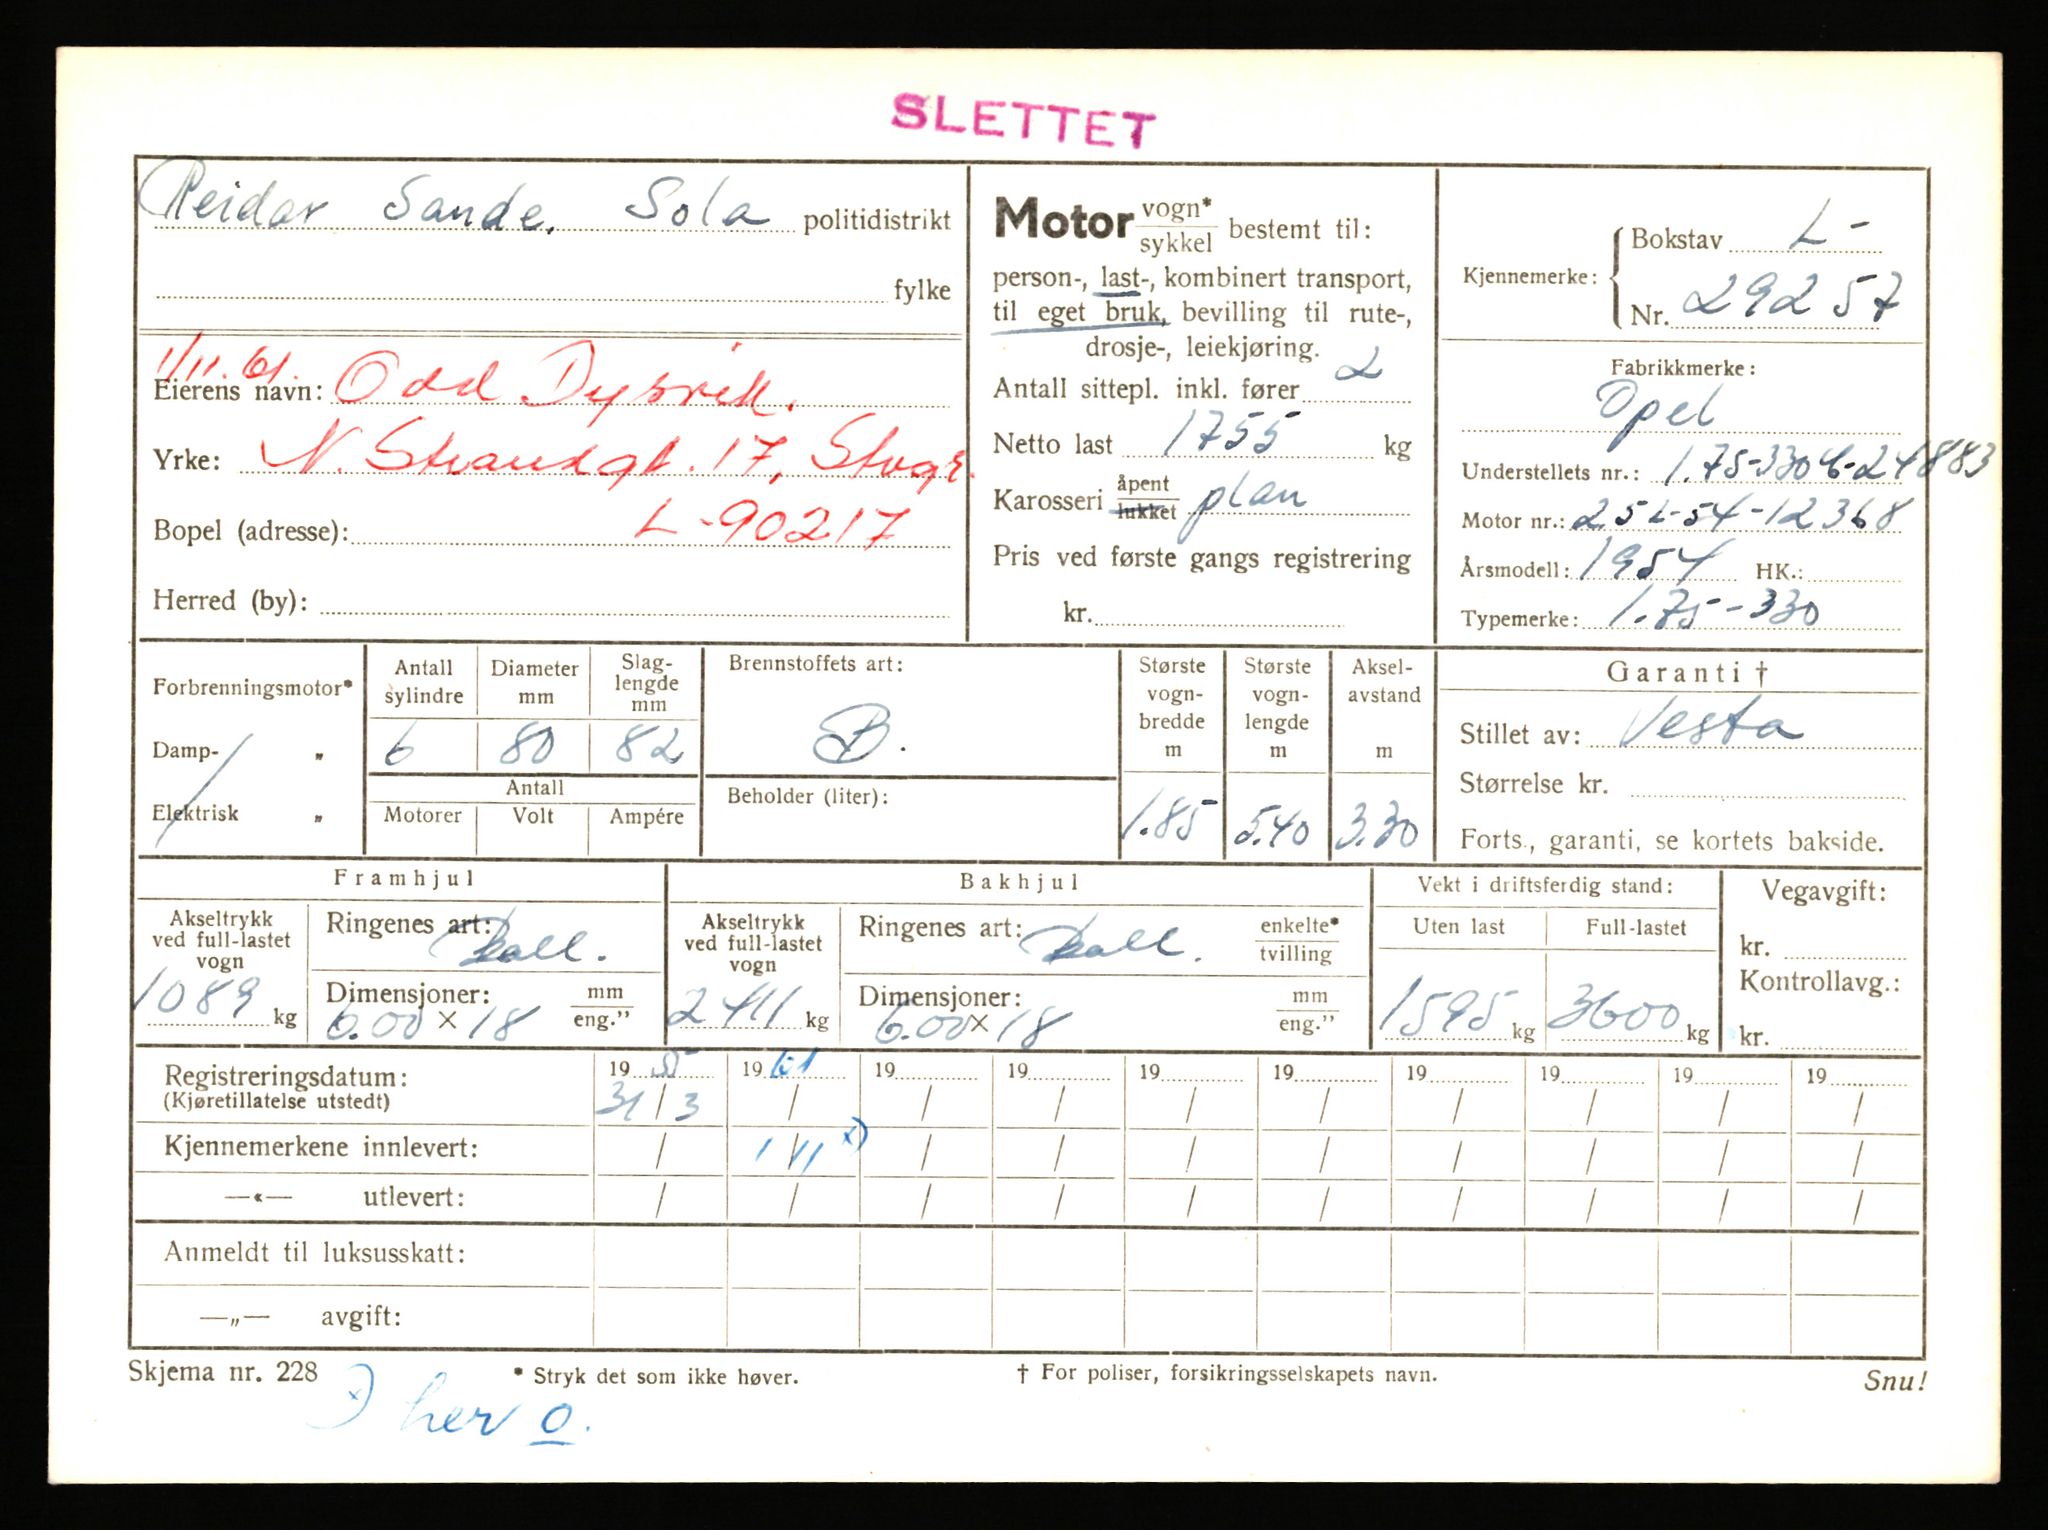 SLETTET
Reidar Sande, Sola politidistrikt
fylke
1/11.61.
Eierens navn: Odd Dysvik.
Yrke: N. Strandgt. 17, Stvgr.
Bopel (adresse): L-90217
Herred (by):
Motor vogn* sykkel bestemt til:
person-, last-, kombinert transport,
til eget bruk, bevilling til rute-,
drosje-, leiekjøring.
Antall sittepl. inkl. fører 2
Netto last 1755 kg
Karosseri åpent lukket plan
Pris ved første gangs registrering
kr.
Kjennemerke: Bokstav L-
Nr. 29257
Fabrikkmerke:
Opel
Understellets nr.: 1.75-3306-24883
Motor nr.: 25L-54-12368
Årsmodell: 1954 HK.:
Typemerke: 1.75-330
Forbrenningsmotor*
Damp- „
Elektrisk „
Antall sylindre
6
Diameter mm
80
Slag-lengde mm
82
Antall
Motorer Volt Ampére
Brennstoffets art:
B.
Beholder (liter):
Største vogn-bredde m
1.85
Største vogn-lengde m
5.40
Aksel-avstand m
3.30
Garanti †
Stillet av: Vesta
Størrelse kr.
Forts., garanti, se kortets bakside.
Framhjul
Akseltrykk ved full-lastet vogn
1089 kg
Ringenes art:
Dimensjoner: mm eng.”
6.00 x 18
Bakhjul
Akseltrykk ved full-lastet vogn
2411 kg
Ringenes art: enkelte* tvilling
Dimensjoner: mm eng.”
6.00 x 18
Vekt i driftsferdig stand:
Uten last Full-lastet
1595 kg 3600 kg
Vegavgift:
kr.
Kontrollavg.:
kr.
Registreringsdatum: 1955 1961 19 19 19 19 19 19 19 19
(Kjøretillatelse utstedt) 31/3 / / / / / / / / /
Kjennemerkene innlevert: / 1/11 x) / / / / / / / /
—«— utlevert: / / / / / / / / / /
Anmeldt til luksusskatt:
—„— avgift:
Skjema nr. 228 * Stryk det som ikke høver. † For poliser, forsikringsselskapets navn. Snu!
x) her o.